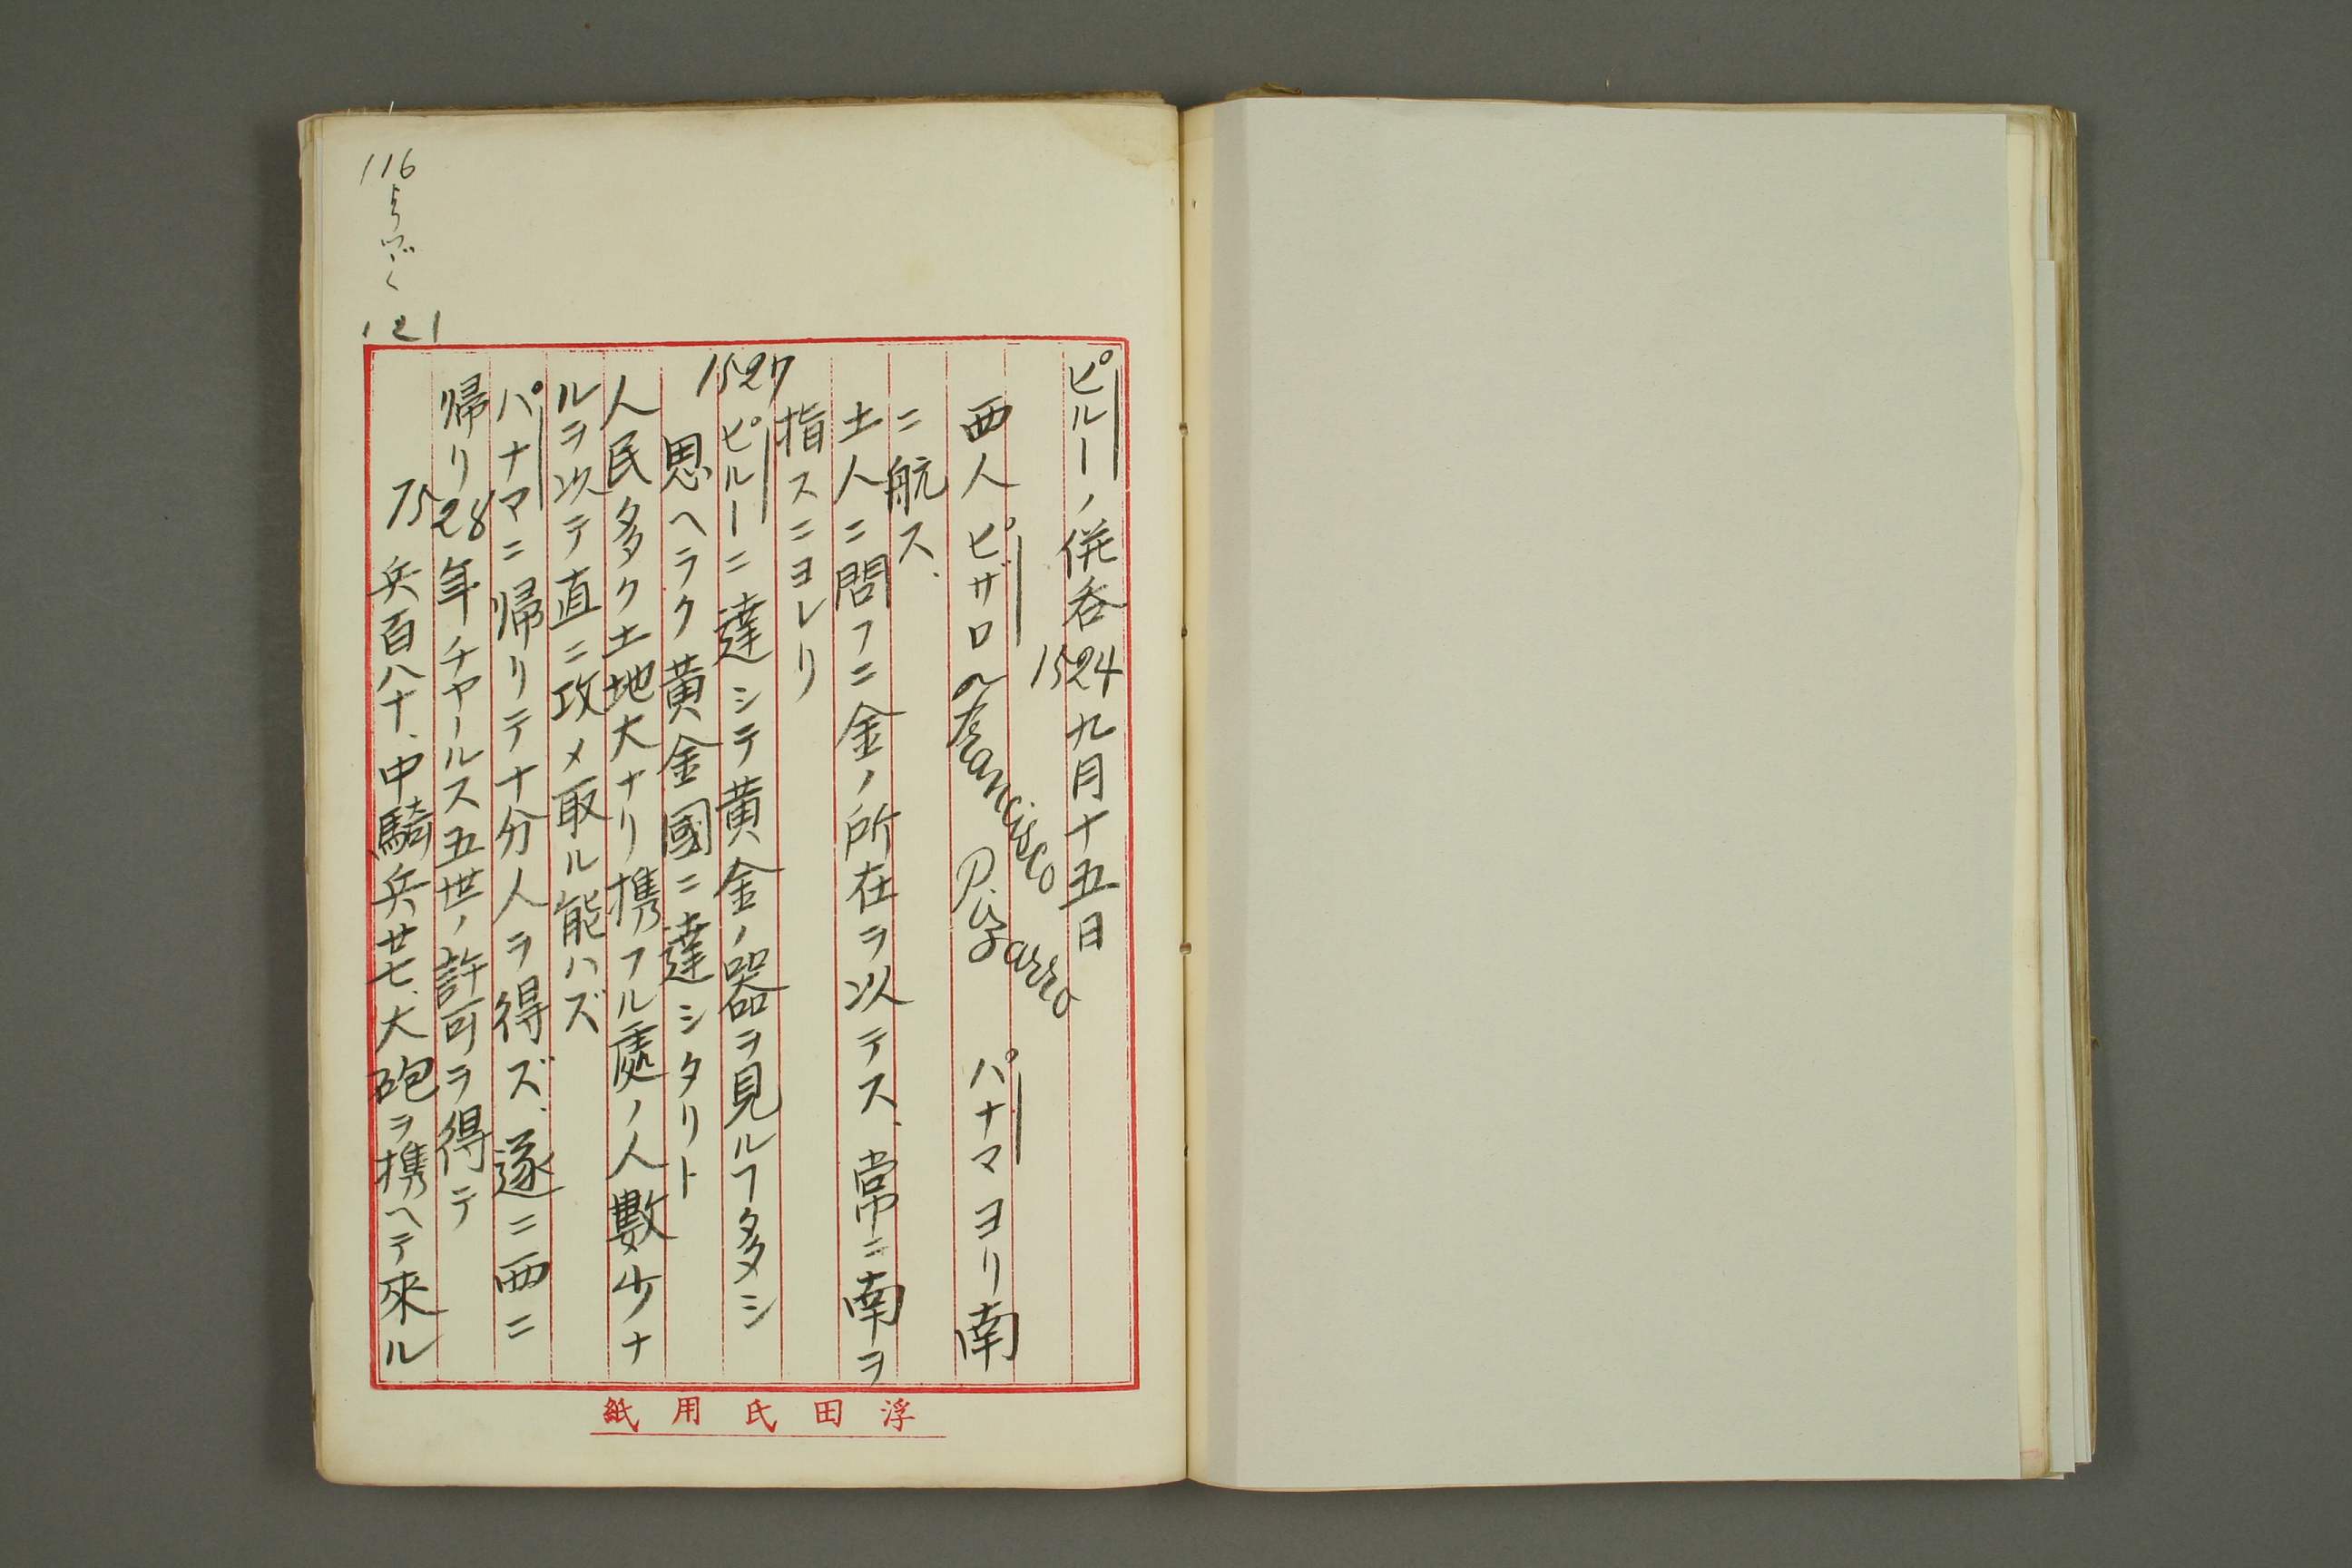 116
よりつゞく
121
ピルーノ併呑1524九月十五日
西人ピザロ Francisco Pizarro パナマヨリ南
ニ航ス、
土人ニ問フニ金ノ所在ヲ以テス、常ニ南ヲ
指スニヨレリ
1527
ピルーニ達シテ黄金ノ器ヲ見ルヿ多シ
思ヘラク黄金國ニ達シタリト
人民多ク土地大ナリ携フル處ノ人數少ナ
ルヲ以テ直ニ攻メ取ル能ハズ
パナマニ帰リテ十分人ヲ得ズ、遂ニ西ニ
帰リ1528年チヤールス五世ノ許可ヲ得テ
兵百八十、中騎兵廿七、大砲ヲ携ヘテ來ル
浮田氏用紙